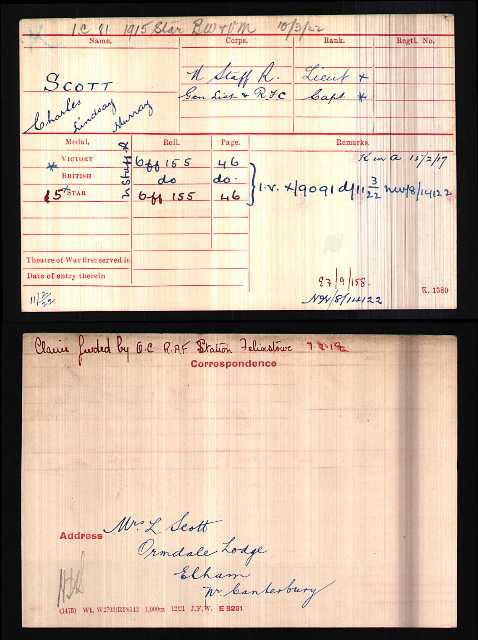 I.C. 81 1915 Star B W & V M 10/3/22
Name. Corps. Rank. Regtl. No.
SCOTT N Staff R. Lieut +
Charles Lindsay Murray Gen List & R F C Capt *
Medal. Roll. Page. Remarks.
* VICTORY Off 155 46 K in A 15/2/17
BRITISH do do.
15 × STAR Off 155 46
N Staff R
I.V. ×/9091 d/11 3/22 NW/8/14122
Theatre of War first served in
Date of entry therein
11/3/22
E7/9/158.
NW/8/14122
K. 1380
Claims fwded by O.C R.A.F Station Felixstowe
Correspondence
Address Mrs L Scott
Ormdale Lodge
Elham
Nr Canterbury
1,000m 12/21 J.F.W. E 8231